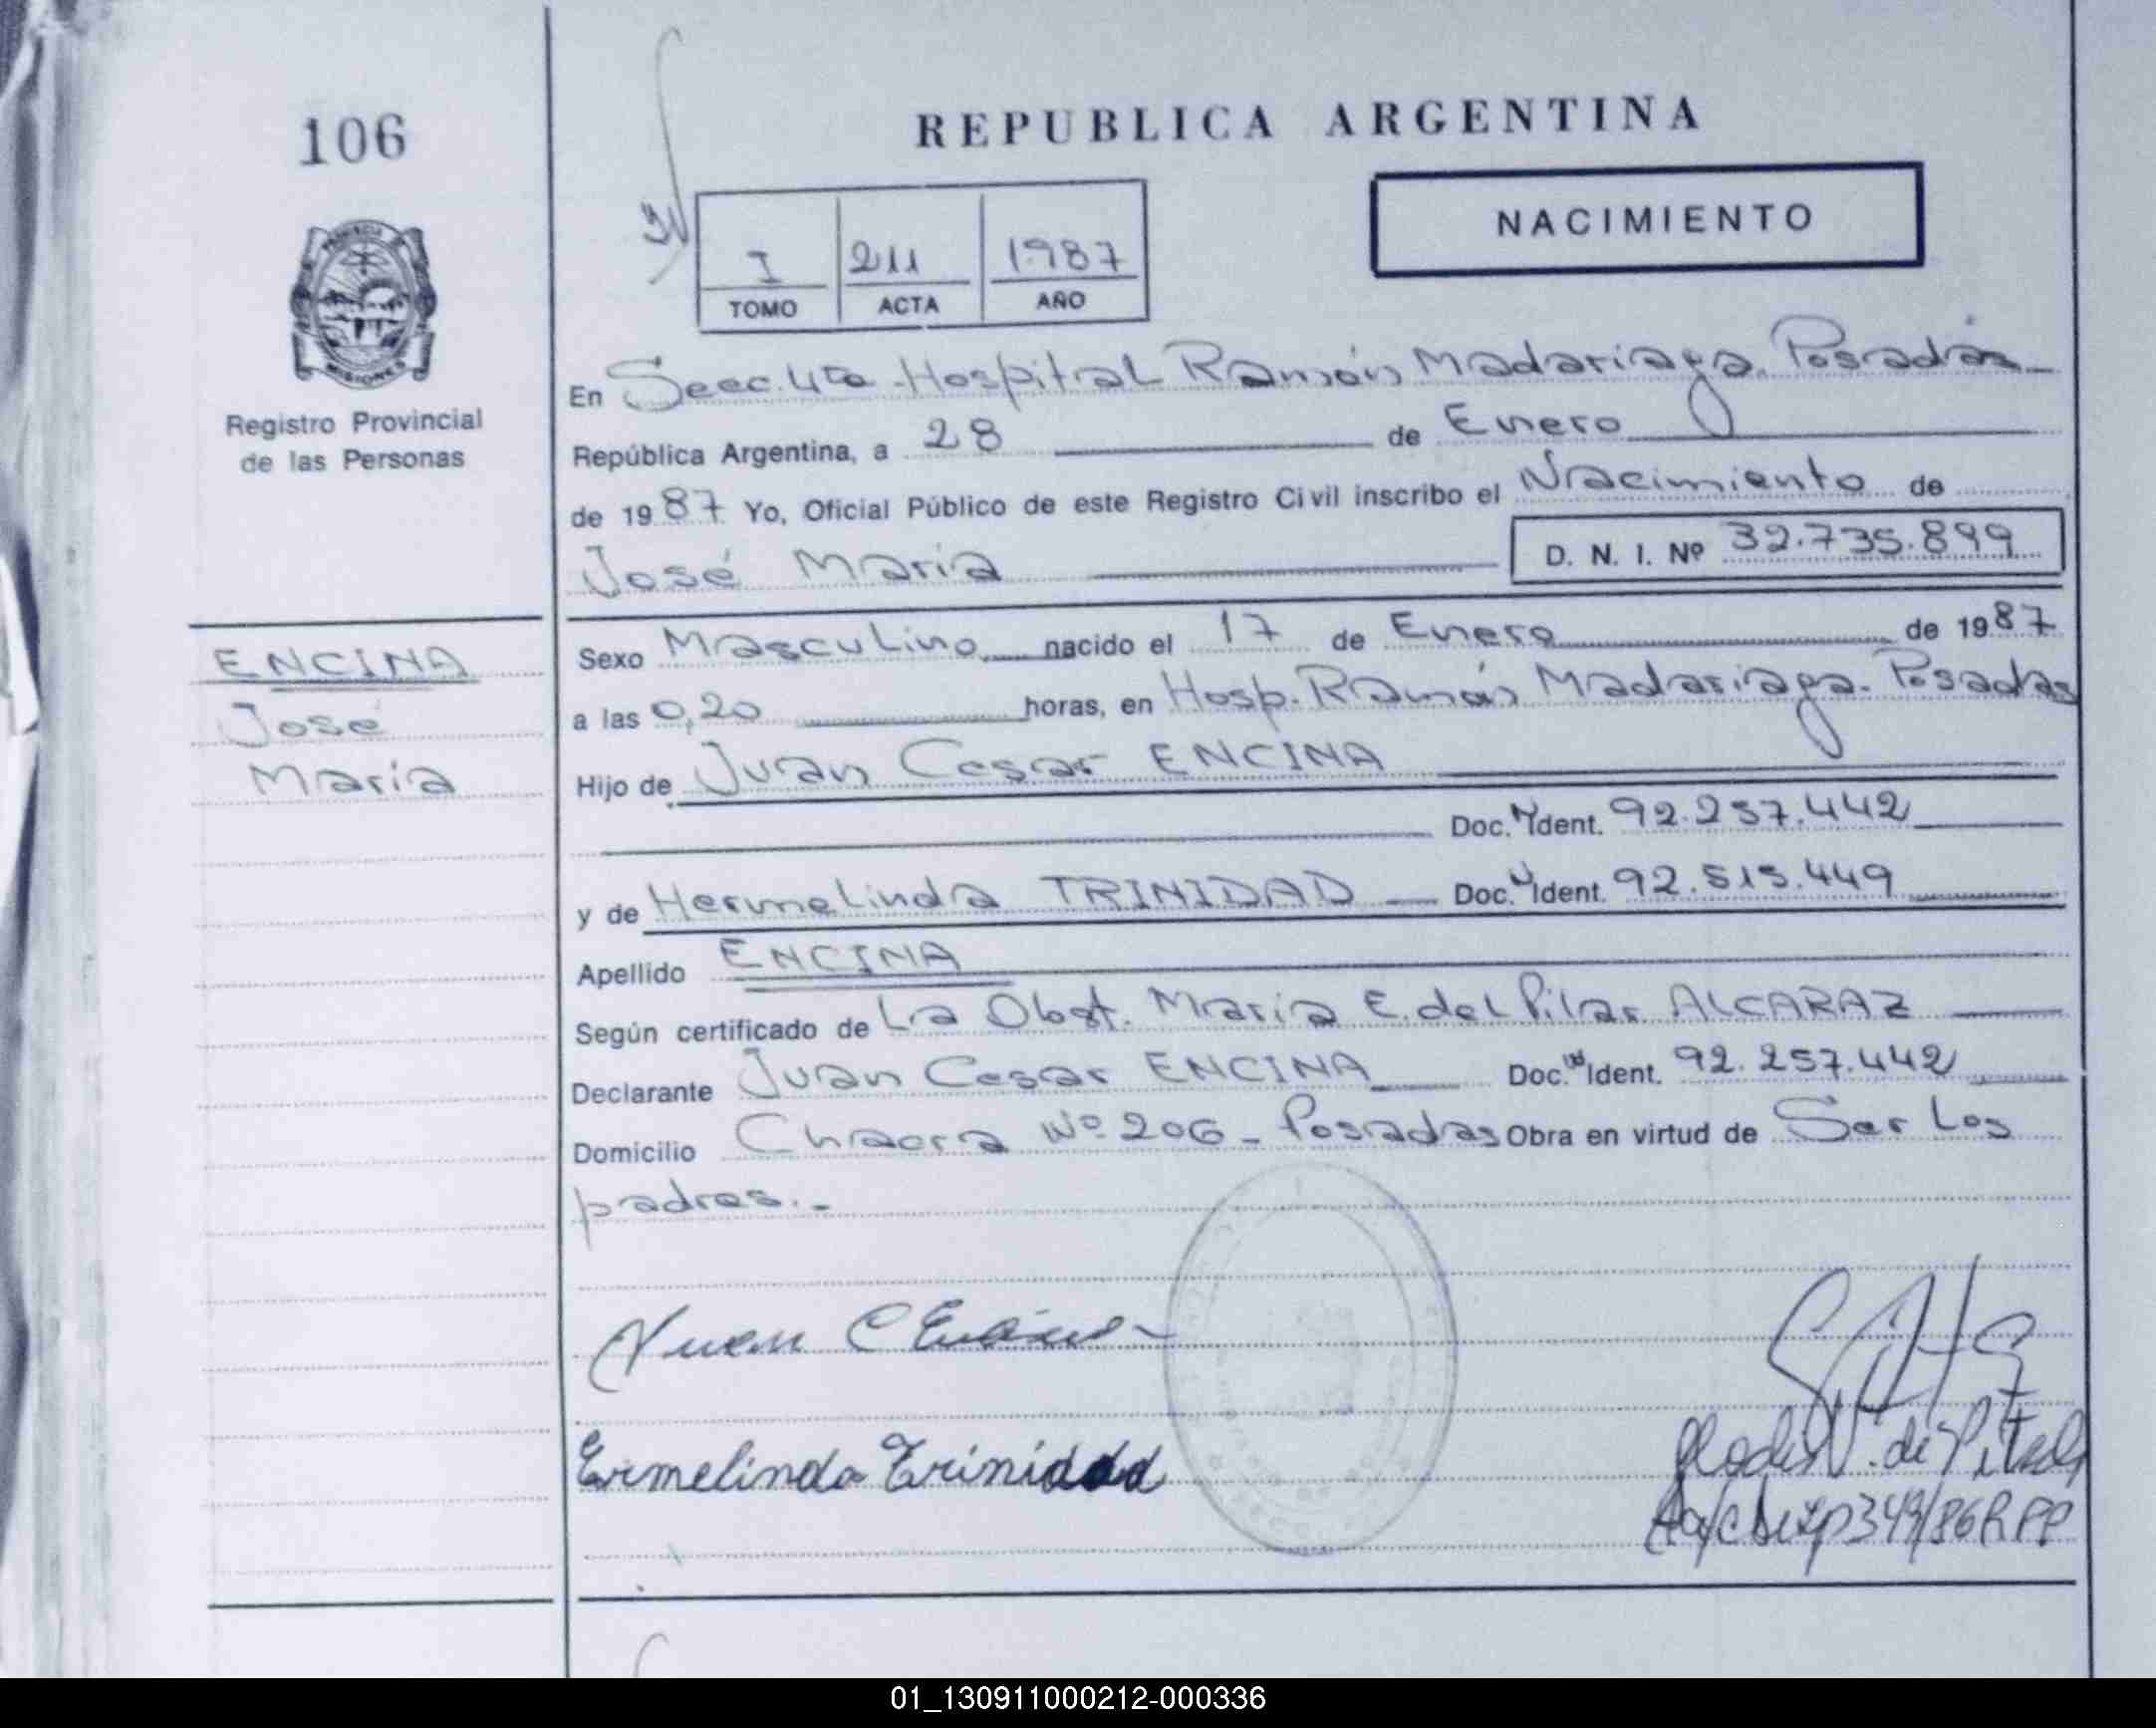 106
REPUBLICA ARGENTINA
NACIMIENTO
I 211 1987
TOMO ACTA AÑO
PROVINCIA DE
MISIONES
Registro Provincial
de las Personas
En Secc. 4ta Hospital Ramón Madariaga. Posadas
República Argentina, a 28 de Enero
de 1987 Yo, Oficial Público de este Registro Civil inscribo el Nacimiento de
José María D. N. I. Nº 32.735.899
ENCINA
José
María
Sexo Masculino nacido el 17 de Enero de 1987
a las 0,20 horas, en Hosp. Ramón Madariaga. Posadas
Hijo de Juan Cesar ENCINA
Doc. Ident. 92.257.442
y de Hermelinda TRINIDAD Doc. Ident. 92.515.449
Apellido ENCINA
Según certificado de La Obst. María E. del Pilar ALCARAZ
Declarante Juan Cesar ENCINA Doc. Ident. 92.257.442
Domicilio Chacra Nº 206 - Posadas Obra en virtud de Ser Los
padres.-
Juan C Encina
Ermelinda Trinidad
349/86 R P P
01_130911000212-000336